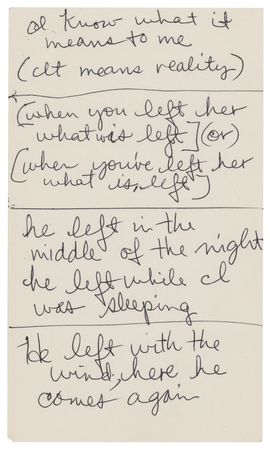 I know what it
means to me
(It means reality)
(when you left her
what was left] (or)
(when you've left her
what is left")
he left in the
middle of the night
he left while I
was sleeping
He left with the
wind, here he
comes again